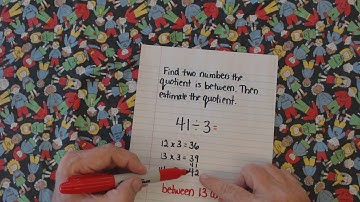 Find two numbers the
quotient is between. Then
estimate the quotient.
41 ÷ 3 =
12 x 3 = 36
13 x 3 = 39
41
42
between 13